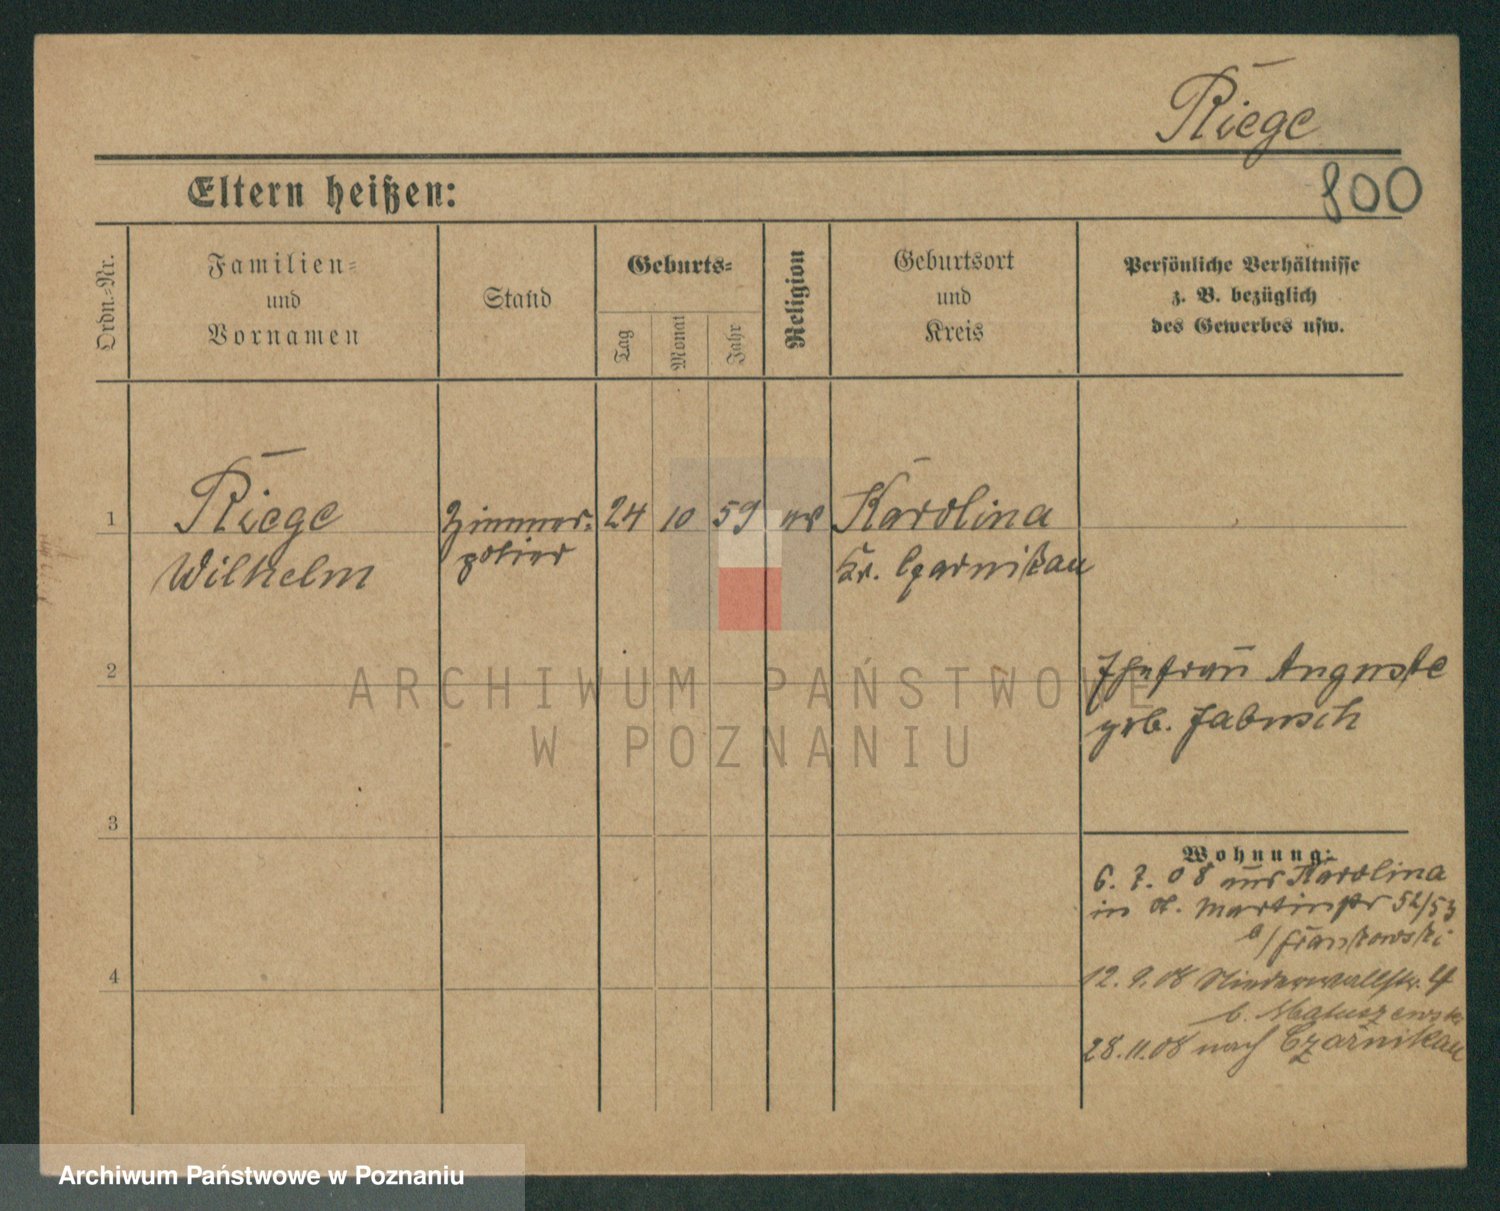 Riege
800
Eltern heißen:
Ordn.-Nr.
Familien-
und
Vornamen
Stand
Geburts-
Tag
Monat
Jahr
Religion
Geburtsort
und
Kreis
Persönliche Verhältnisse
z. B. bezüglich
des Gewerbes usw.
1
Riege
Wilhelm
Zimmer-
polier
24 10 59 ev
Karolina
Kr. Czarnikau
2
Ehefrau Auguste
geb. Jabusch
3
Wohnung:
6. 7. 08 aus Karolina
in St. Martinstr 52/53
b/ Frankowski
4
12. 9. 08 Niederwallstr. 4
b. Matuszewski
28. 11. 08 nach Czarnikau
ARCHIWUM PAŃSTWOWE
W POZNANIU
Archiwum Państwowe w Poznaniu